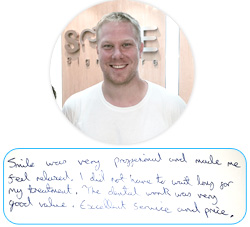 Smile was very proffesional and made me
feel relaxed. I did not have to wait long for
my treatment. The dental work was very
good value. Excellent Service and price.